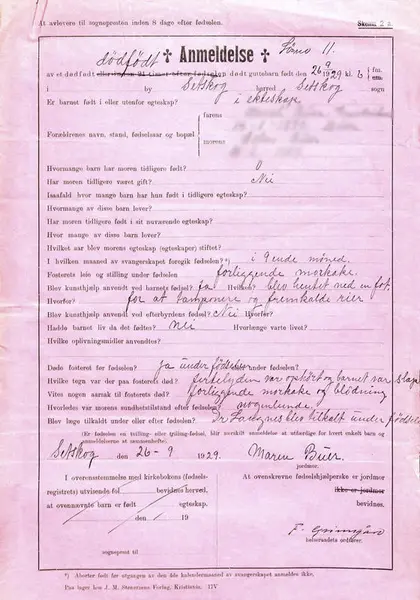 At avlevere til sognepresten inden 8 dage efter fødselen.
Skema 2 a.
dødfødt Anmeldelse 11.
av et dødfødt eller inden 24 timer efter fødselen dødt guttebarn født den 26/9 1929 kl. 6 fm. em.
i by Setskog herred Setskog sogn
Er barnet født i eller utenfor egteskap? i ekteskap.
farens
Forældrenes navn, stand, fødselsaar og bopæl
morens
Hvormange barn har moren tidligere født? 0
Har moren tidligere været gift? Nei
Isaafald hvor mange barn har hun født i tidligere egteskap?
Hvormange av disse barn lever?
Har moren tidligere født i sit nuværende egteskap?
Hvor mange av disse barn lever?
Hvilket aar blev morens egteskap (egteskaper) stiftet?
I hvilken maaned av svangerskapet foregik fødselen? *) i 9ende måned.
Fosterets leie og stilling under fødselen forliggende morkake.
Blev kunsthjælp anvendt ved barnets fødsel? ja Hvilken? blev hentet med en fot.
Hvorfor? for at tamponere og fremkalde rier
Blev kunsthjælp anvendt ved efterbyrdens fødsel? Nei Hvorfor?
Hadde barnet liv da det fødtes? nei Hvorlænge varte livet?
Hvilke oplivningsmidler anvendtes?
Døde fosteret før fødselen? ja under fødselen under fødselen?
Hvilke tegn var der paa fosterets død? fosterlyden var ophørt og barnet var slap
Vites nogen aarsak til fosterets død? forliggende morkake og blødning
Hvorledes var morens sundhetstilstand før eller efter fødselen? nogenlunde.
Blev læge tilkaldt under eller efter fødselen? Dr blev tilkalt under fødselen
(Er fødselen en tvilling- eller trilling-fødsel, bør særskilt anmeldelse at utfærdige for hvert enkelt barn og anmeldelserne at sammenhefte).
Setskog den 26 - 9 1929. Maren Buer.
jordmor.
I overensstemmelse med kirkeboken (fødselsregistrets) utvisende bevidnes herved, at ovennævnte barn er født egteskap.
den / 19
sogneprest til
At ovenskrevne fødselshjælperske er jordmor
ikke er jordmor
bevidnes.
helseraadets ordfører.
*) Aborter født før utgangen av den 4de kalendermaaned av svangerskapet anmeldes ikke.
Paa lager hos J. M. Stenersens Forlag, Kristiania. 17V